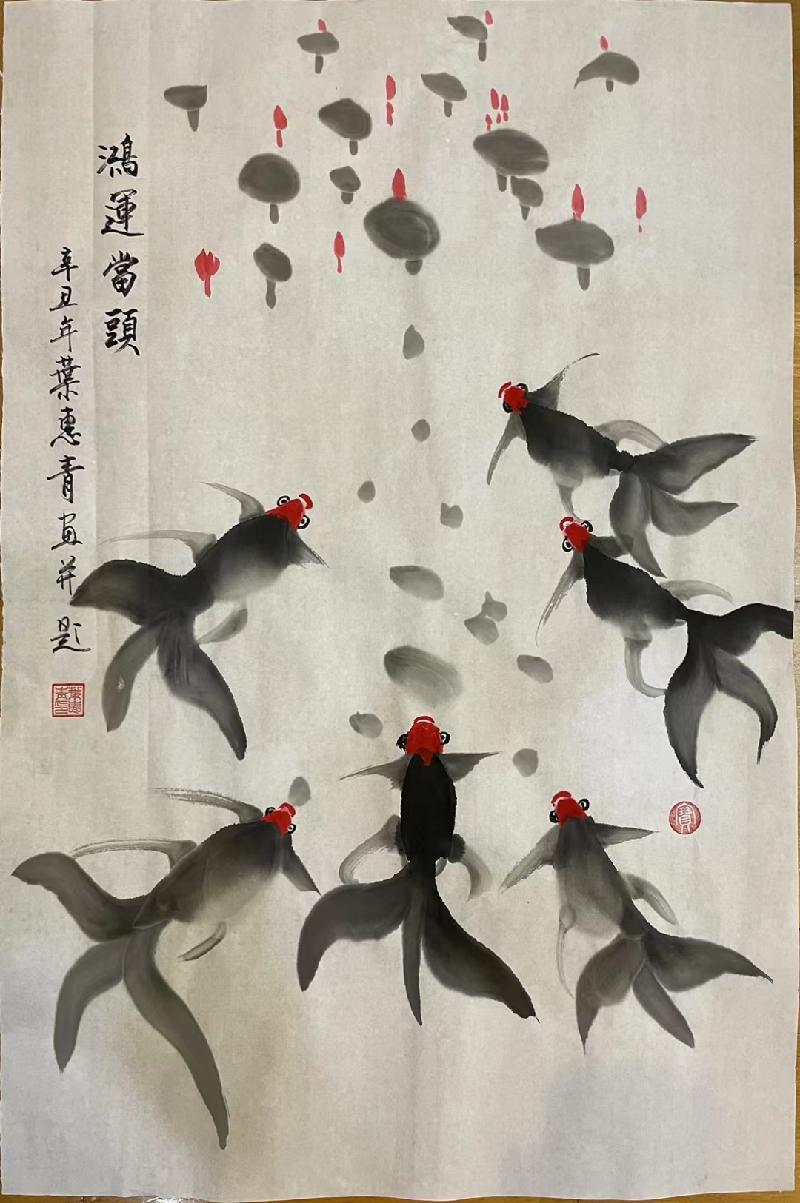 鴻運當頭
辛丑年葉惠青畫并題